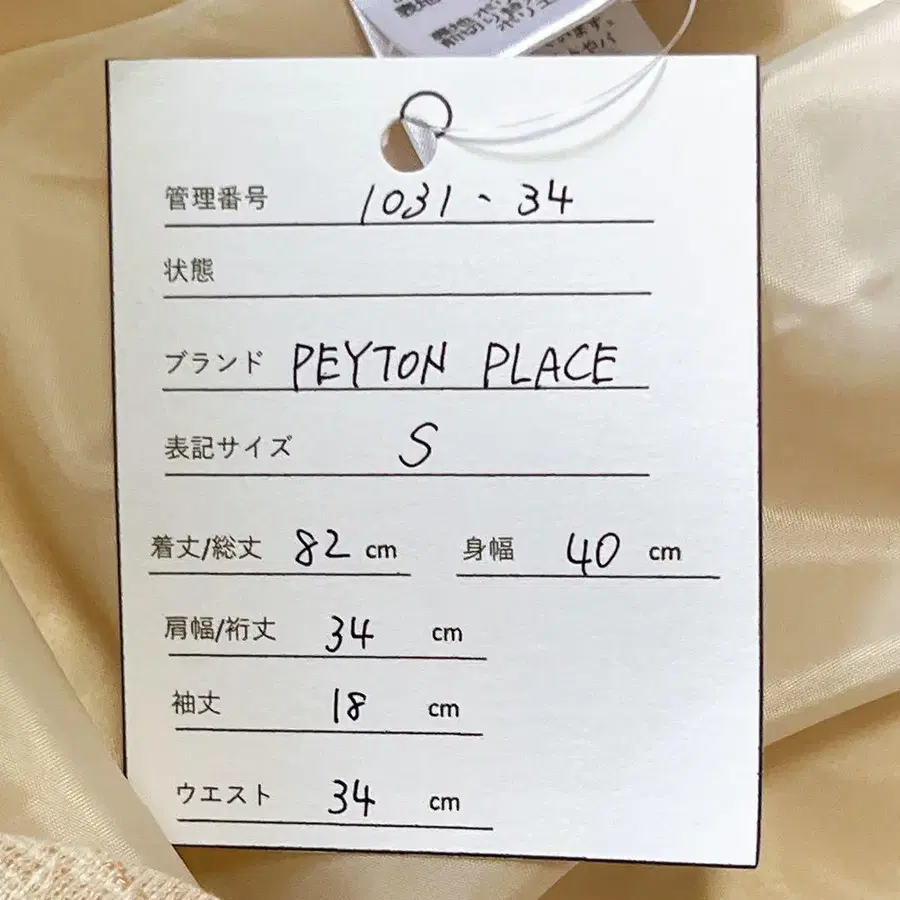 管理番号 1031-34
状態
ブランド PEYTON PLACE
表記サイズ S
着丈/総丈 82 cm 身幅 40 cm
肩幅/裄丈 34 cm
袖丈 18 cm
ウエスト 34 cm